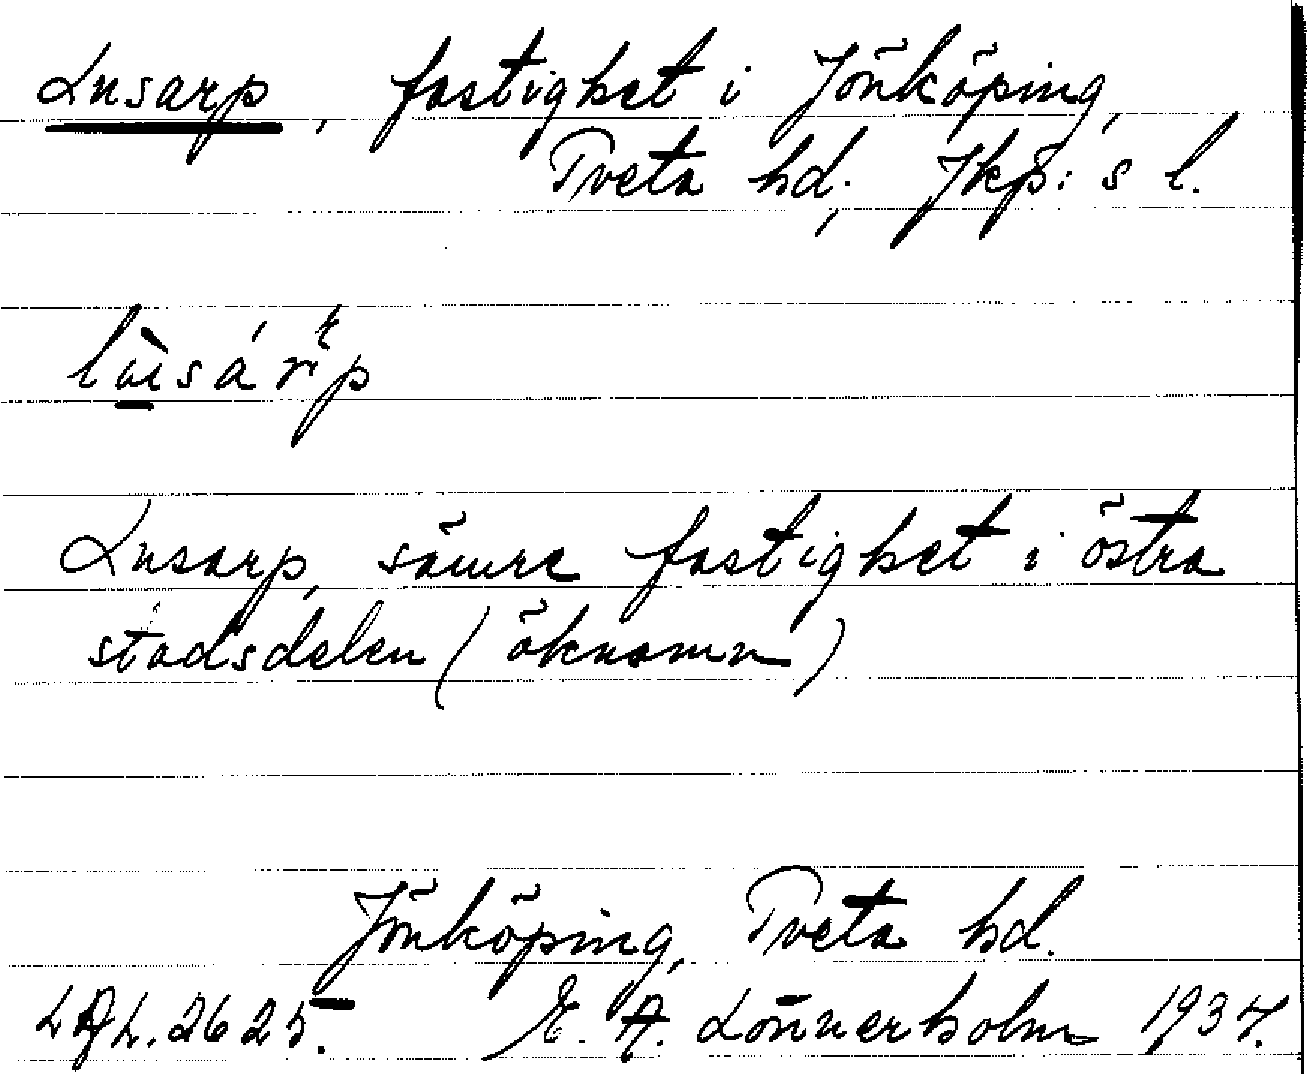 Lusarp, fastighet i Jönköping,
Tveta hd., Jkp:s l.
Lusarp, sämre fastighet i östra
stadsdelen (öknamn)
Jönköping, Tveta hd.
E. A. Lönnerholm 1934.